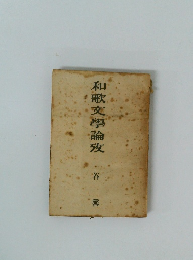 和歌文學論攷